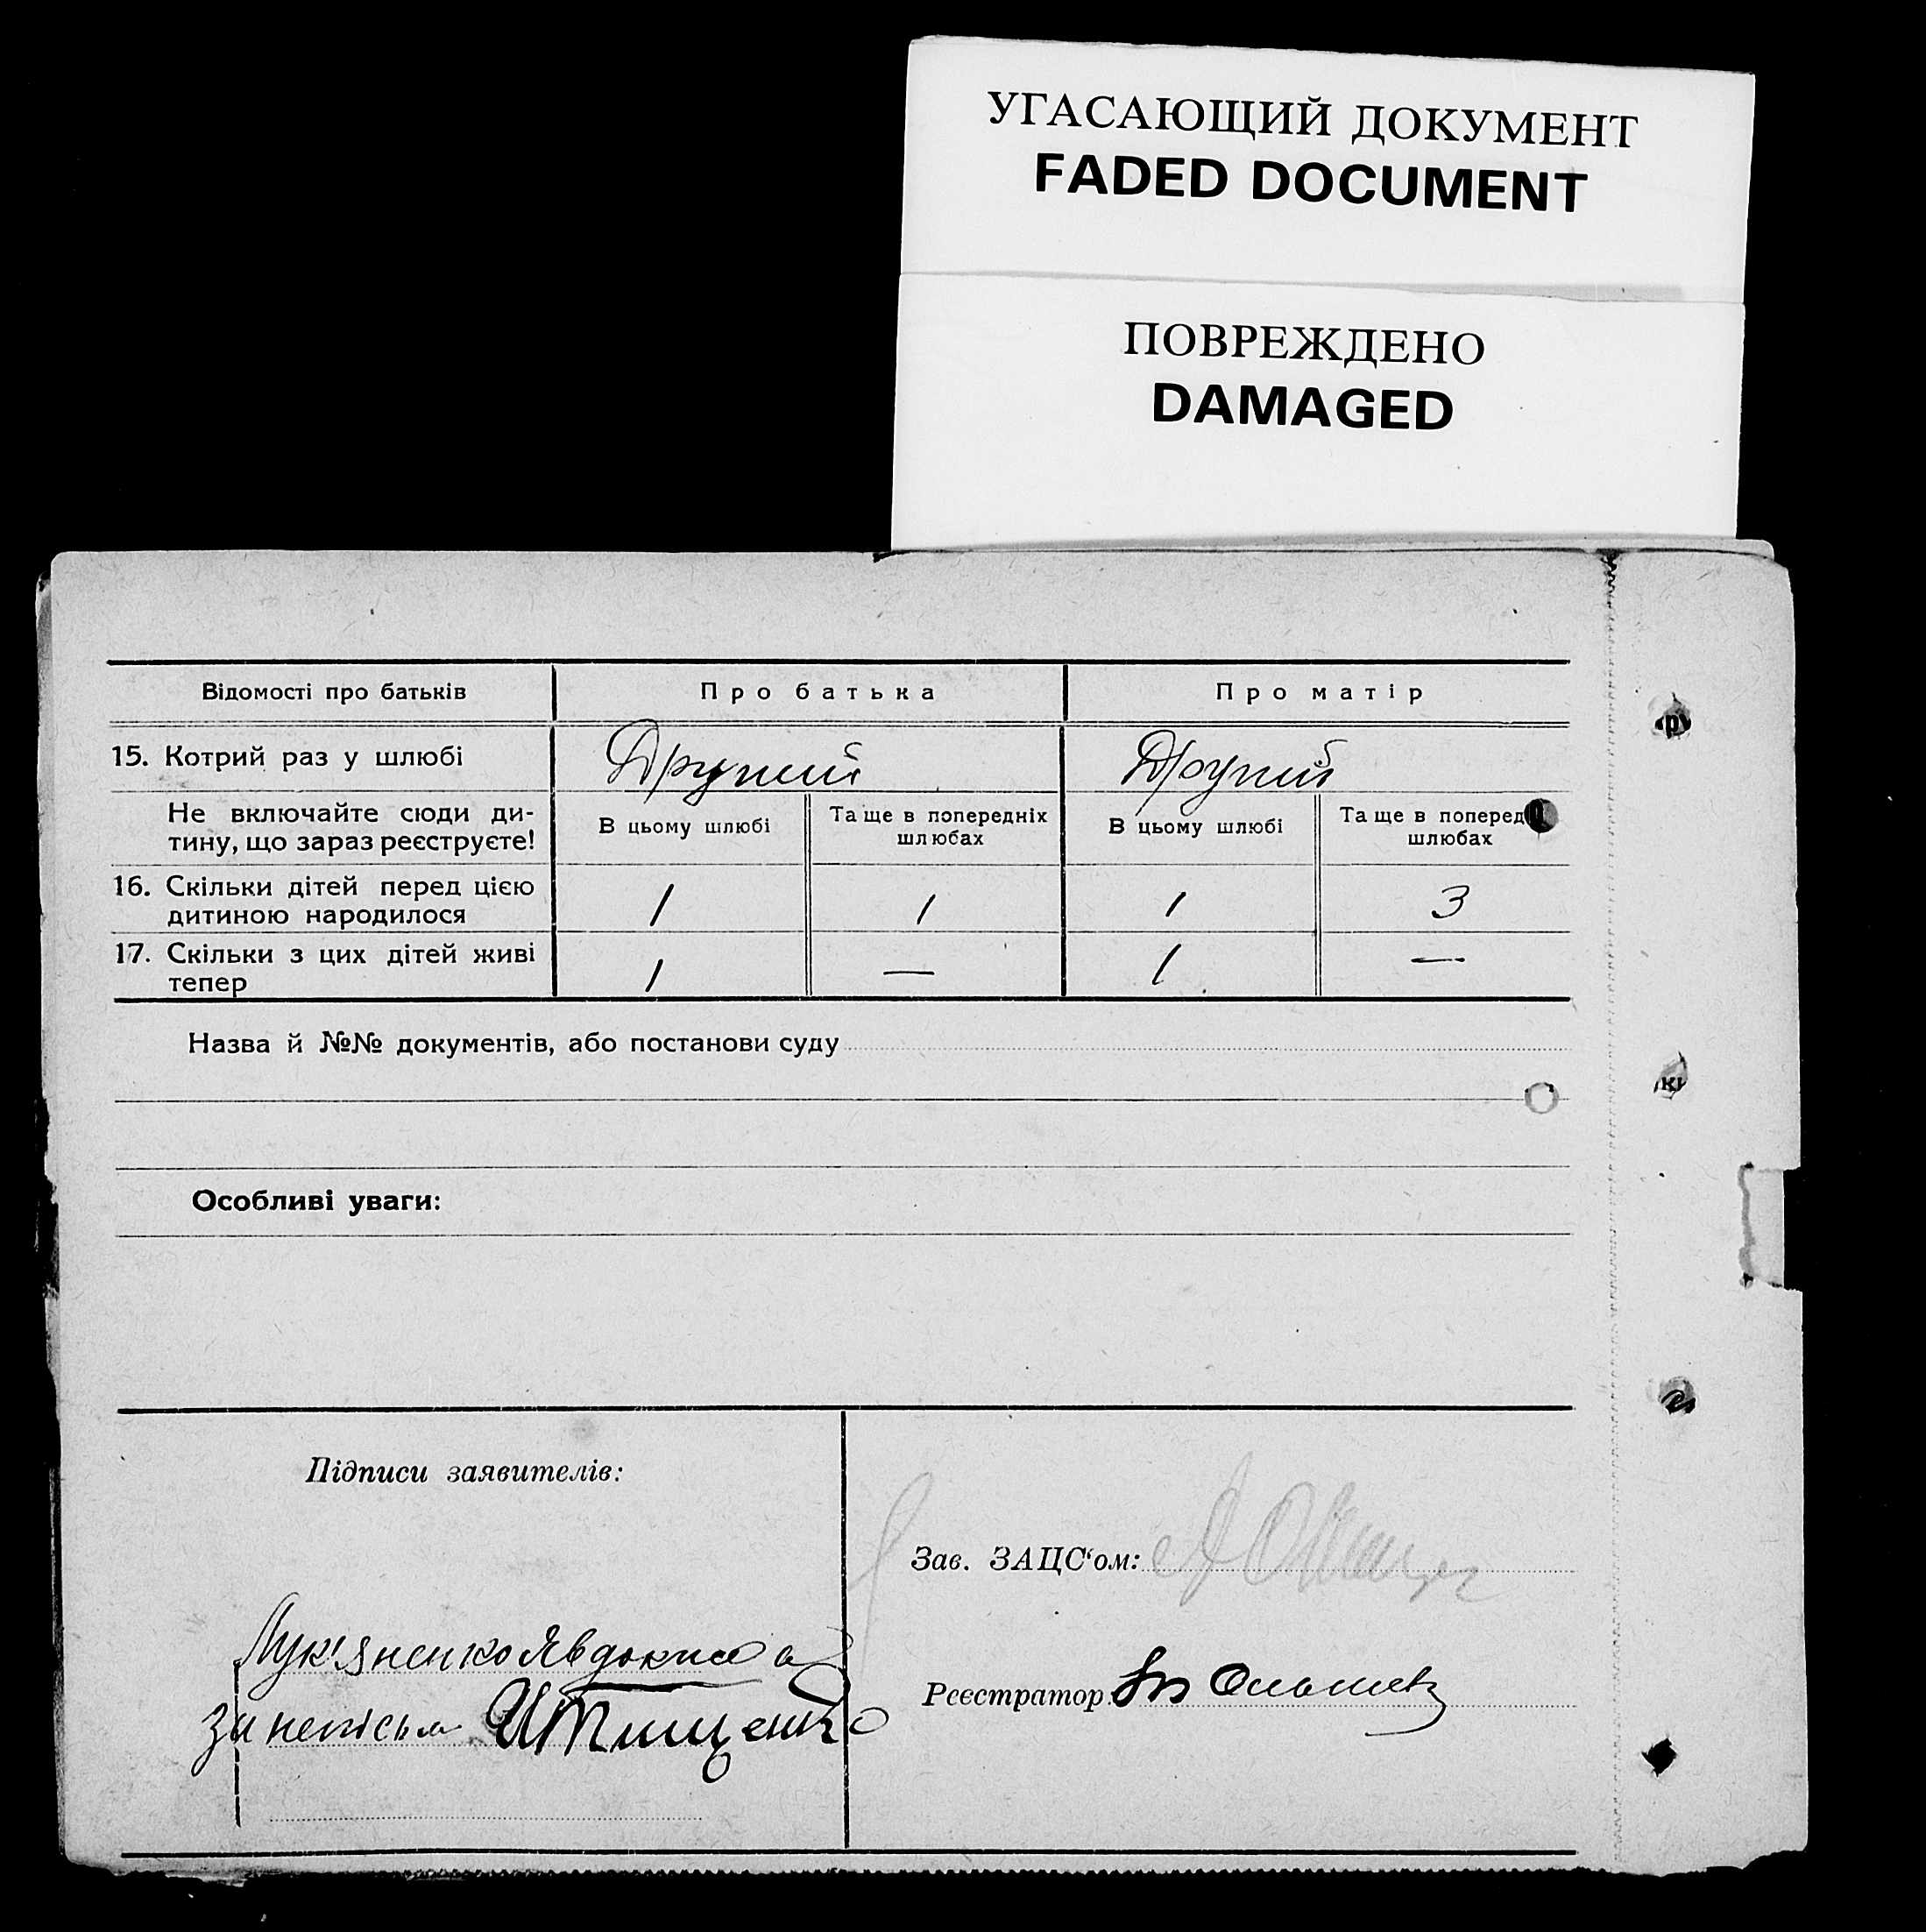 УГАСАЮЩИЙ ДОКУМЕНТ
FADED DOCUMENT
ПОВРЕЖДЕНО
DAMAGED
Відомості про батьків Про батька Про матір
15. Котрий раз у шлюбі Другий Другий
Не включайте сюди ди-
тину, що зараз реєструєте!
В цьому шлюбі
Та ще в попередніх
шлюбах
В цьому шлюбі
Та ще в поперед
шлюбах
16. Скільки дітей перед цією
дитиною народилося 1 1 1 3
17. Скільки з цих дітей живі
тепер 1 — 1 —
Назва й №№ документів, або постанови суду
Особливі уваги:
Підписи заявителів:
Зав. ЗАЦС‘ом:
Лук'яненко Явдокия
за неписьм Тищенко
Реєстратор